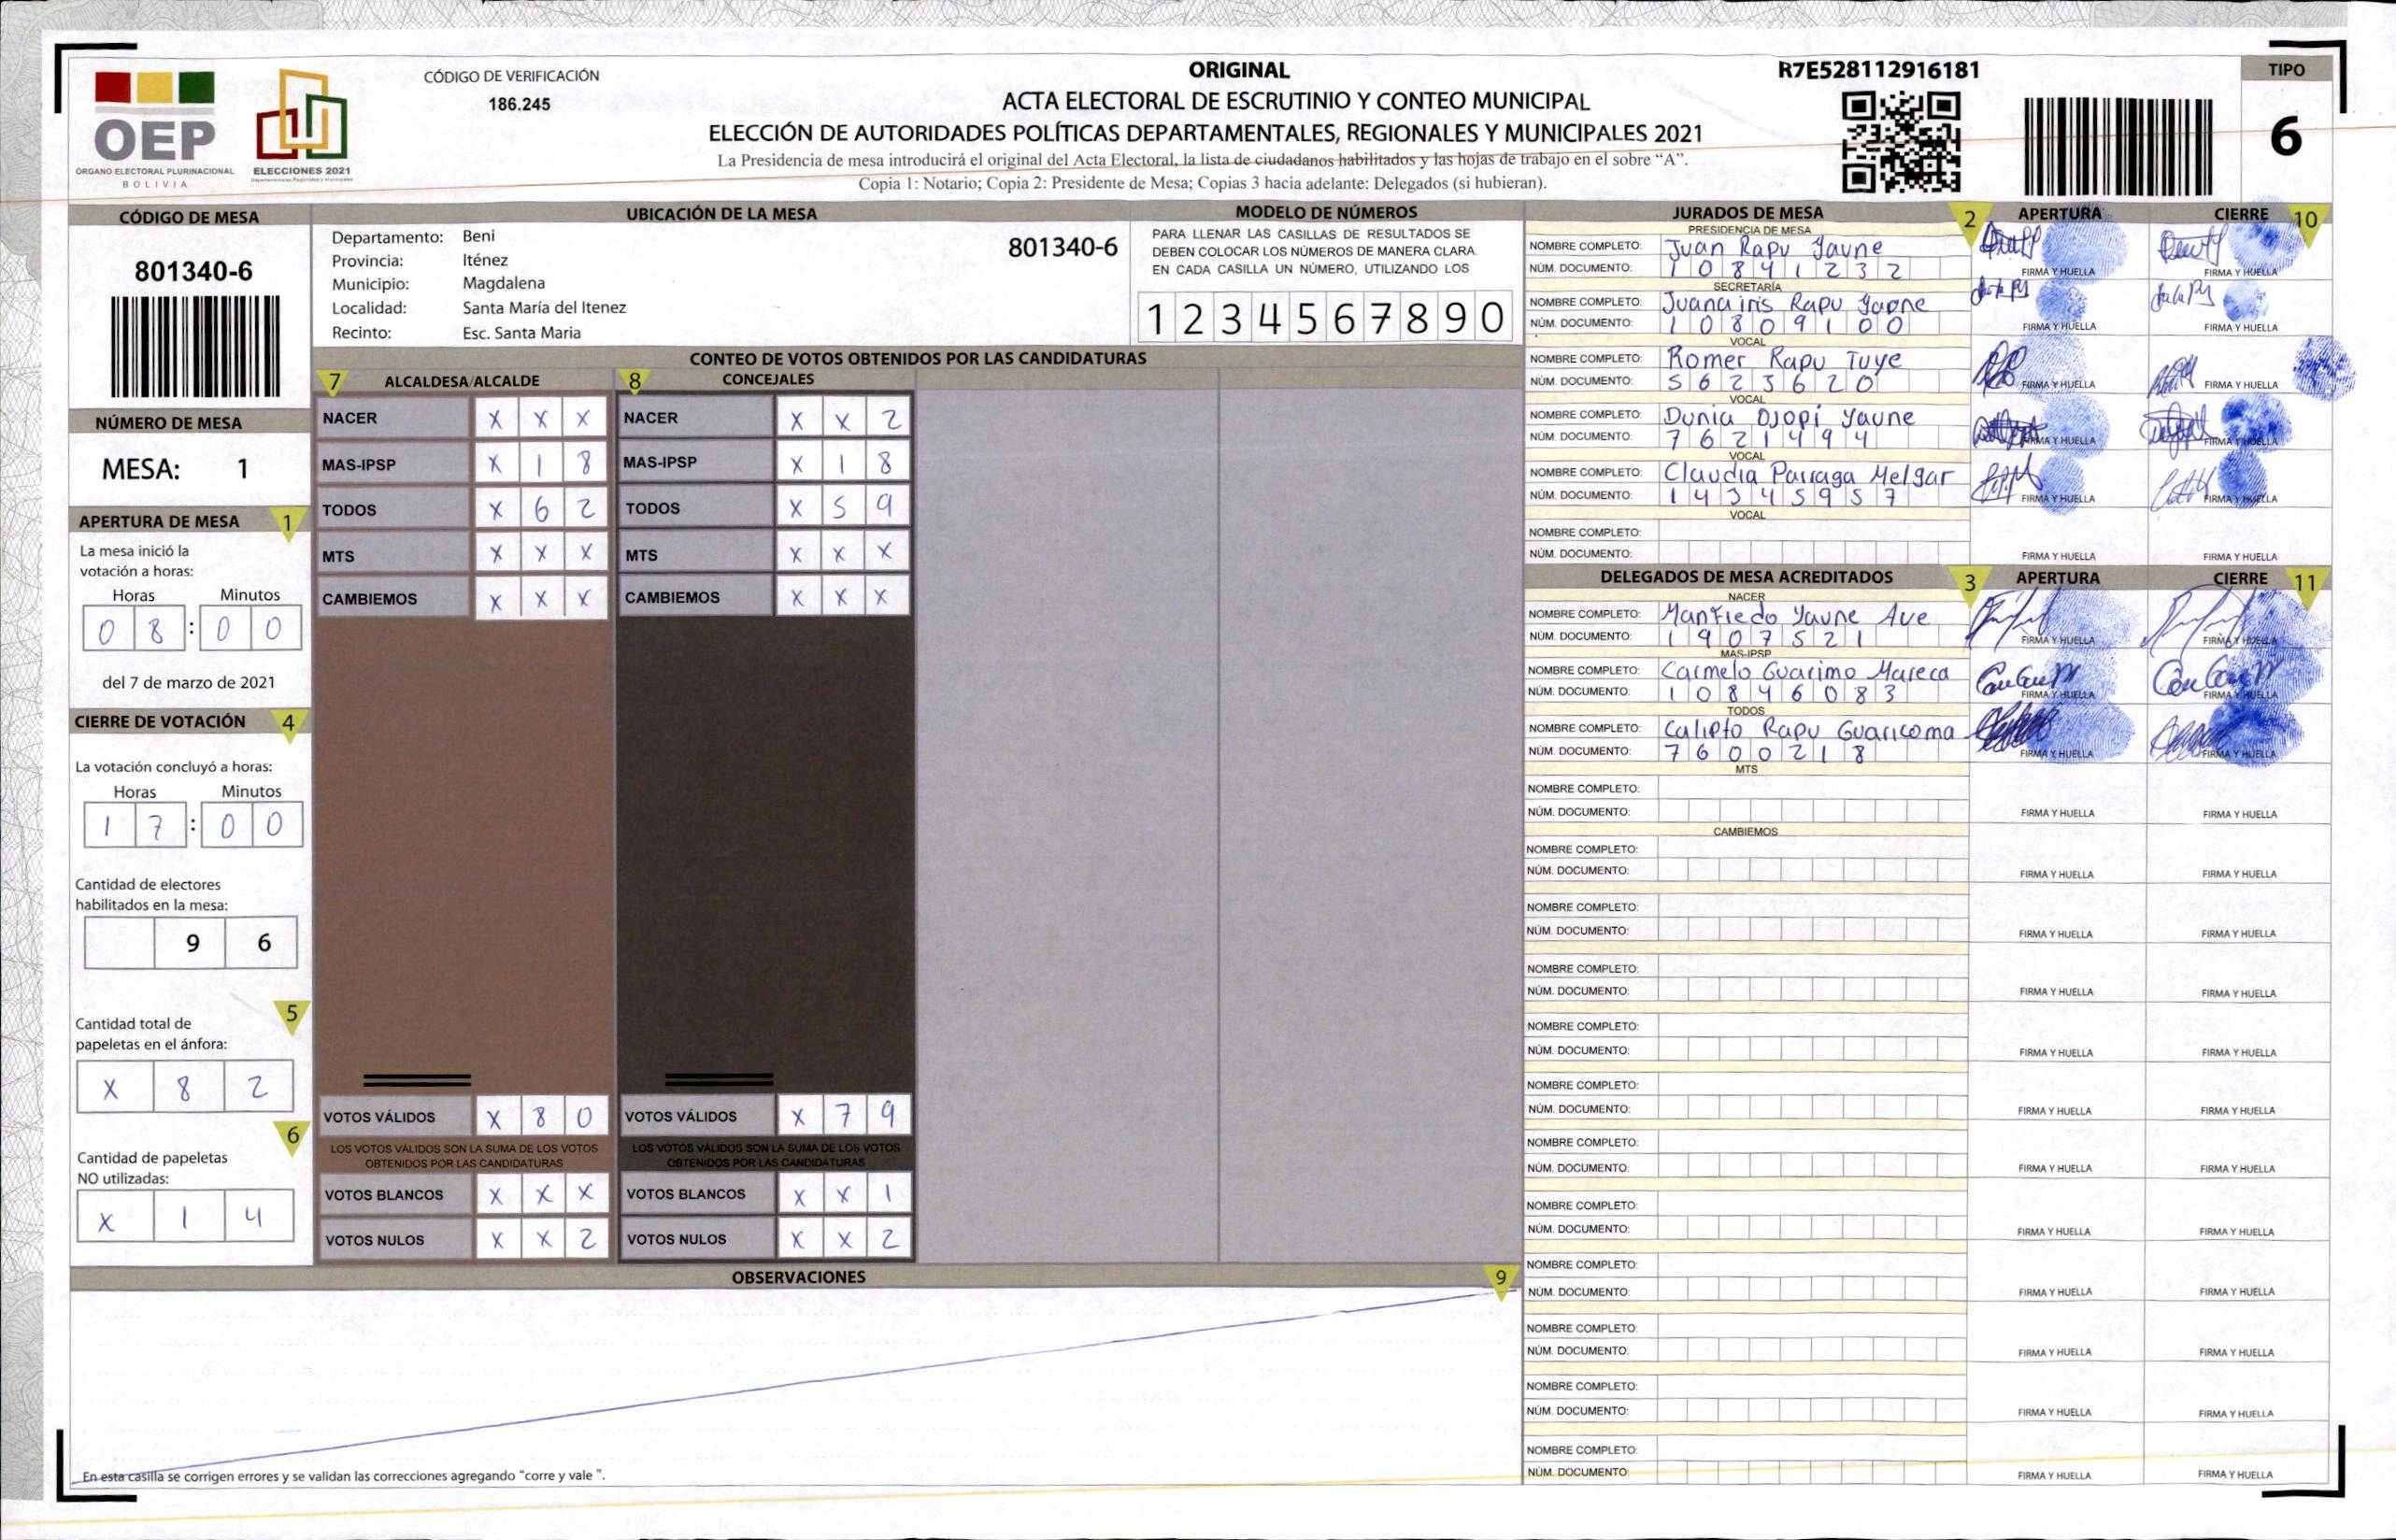 OEP
ÓRGANO ELECTORAL PLURINACIONAL
BOLIVIA
ELECCIONES 2021
CÓDIGO DE VERIFICACIÓN
186.245
ORIGINAL
ACTA ELECTORAL DE ESCRUTINIO Y CONTEO MUNICIPAL
ELECCIÓN DE AUTORIDADES POLÍTICAS DEPARTAMENTALES, REGIONALES Y MUNICIPALES 2021
La Presidencia de mesa introducirá el original del Acta Electoral, la lista de ciudadanos habilitados y las hojas de trabajo en el sobre “A”.
Copia 1: Notario; Copia 2: Presidente de Mesa; Copias 3 hacia adelante: Delegados (si hubieran).
R7E528112916181
TIPO
6
CÓDIGO DE MESA
801340-6
NÚMERO DE MESA
MESA: 1
APERTURA DE MESA 1
La mesa inició la
votación a horas:
Horas Minutos
0 8 : 0 0
del 7 de marzo de 2021
CIERRE DE VOTACIÓN 4
La votación concluyó a horas:
Horas Minutos
1 7 : 0 0
Cantidad de electores
habilitados en la mesa:
9 6
5
Cantidad total de
papeletas en el ánfora:
X 8 2
6
Cantidad de papeletas
NO utilizadas:
X 1 4
UBICACIÓN DE LA MESA
Departamento: Beni
801340-6
Provincia: Iténez
Municipio: Magdalena
Localidad: Santa María del Itenez
Recinto: Esc. Santa Maria
MODELO DE NÚMEROS
PARA LLENAR LAS CASILLAS DE RESULTADOS SE
DEBEN COLOCAR LOS NÚMEROS DE MANERA CLARA.
EN CADA CASILLA UN NÚMERO, UTILIZANDO LOS
1 2 3 4 5 6 7 8 9 0
CONTEO DE VOTOS OBTENIDOS POR LAS CANDIDATURAS
7 ALCALDESA/ALCALDE
NACER X X X
MAS-IPSP X 1 8
TODOS X 6 2
MTS X X X
CAMBIEMOS X X X
VOTOS VÁLIDOS X 8 0
LOS VOTOS VÁLIDOS SON LA SUMA DE LOS VOTOS
OBTENIDOS POR LAS CANDIDATURAS
VOTOS BLANCOS X X X
VOTOS NULOS X X 2
8 CONCEJALES
NACER X X 2
MAS-IPSP X 1 8
TODOS X 5 9
MTS X X X
CAMBIEMOS X X X
VOTOS VÁLIDOS X 7 9
LOS VOTOS VÁLIDOS SON LA SUMA DE LOS VOTOS
OBTENIDOS POR LAS CANDIDATURAS
VOTOS BLANCOS X X 1
VOTOS NULOS X X 2
OBSERVACIONES 9
En esta casilla se corrigen errores y se validan las correcciones agregando “corre y vale ”.
JURADOS DE MESA 2 APERTURA CIERRE 10
PRESIDENCIA DE MESA
NOMBRE COMPLETO: Juan Rapu Yaune
NÚM. DOCUMENTO: 1 0 8 4 1 2 3 2 FIRMA Y HUELLA FIRMA Y HUELLA
SECRETARÍA
NOMBRE COMPLETO: Juana iris Rapu Yaune
NÚM. DOCUMENTO: 1 0 8 0 9 1 0 0 FIRMA Y HUELLA FIRMA Y HUELLA
VOCAL
NOMBRE COMPLETO: Romer Rapu Tuye
NÚM. DOCUMENTO: 5 6 2 3 6 2 0 FIRMA Y HUELLA FIRMA Y HUELLA
VOCAL
NOMBRE COMPLETO: Dunia Ojopi Yaune
NÚM. DOCUMENTO: 7 6 2 1 4 9 4 FIRMA Y HUELLA FIRMA Y HUELLA
VOCAL
NOMBRE COMPLETO: Claudia Parraga Melgar
NÚM. DOCUMENTO: 1 4 3 4 5 9 5 7 FIRMA Y HUELLA FIRMA Y HUELLA
VOCAL
NOMBRE COMPLETO:
NÚM. DOCUMENTO: FIRMA Y HUELLA FIRMA Y HUELLA
DELEGADOS DE MESA ACREDITADOS 3 APERTURA CIERRE 11
NACER
NOMBRE COMPLETO: Manfredo Yaune Ave
NÚM. DOCUMENTO: 1 9 0 7 5 2 1 FIRMA Y HUELLA FIRMA Y HUELLA
MAS-IPSP
NOMBRE COMPLETO: Carmelo Guarimo Mareca
NÚM. DOCUMENTO: 1 0 8 4 6 0 8 3 FIRMA Y HUELLA FIRMA Y HUELLA
TODOS
NOMBRE COMPLETO: Calipto Rapu Guaricoma
NÚM. DOCUMENTO: 7 6 0 0 2 1 8 FIRMA Y HUELLA FIRMA Y HUELLA
MTS
NOMBRE COMPLETO:
NÚM. DOCUMENTO: FIRMA Y HUELLA FIRMA Y HUELLA
CAMBIEMOS
NOMBRE COMPLETO:
NÚM. DOCUMENTO: FIRMA Y HUELLA FIRMA Y HUELLA
NOMBRE COMPLETO:
NÚM. DOCUMENTO: FIRMA Y HUELLA FIRMA Y HUELLA
NOMBRE COMPLETO:
NÚM. DOCUMENTO: FIRMA Y HUELLA FIRMA Y HUELLA
NOMBRE COMPLETO:
NÚM. DOCUMENTO: FIRMA Y HUELLA FIRMA Y HUELLA
NOMBRE COMPLETO:
NÚM. DOCUMENTO: FIRMA Y HUELLA FIRMA Y HUELLA
NOMBRE COMPLETO:
NÚM. DOCUMENTO: FIRMA Y HUELLA FIRMA Y HUELLA
NOMBRE COMPLETO:
NÚM. DOCUMENTO: FIRMA Y HUELLA FIRMA Y HUELLA
NOMBRE COMPLETO:
NÚM. DOCUMENTO: FIRMA Y HUELLA FIRMA Y HUELLA
NOMBRE COMPLETO:
NÚM. DOCUMENTO: FIRMA Y HUELLA FIRMA Y HUELLA
NOMBRE COMPLETO:
NÚM. DOCUMENTO: FIRMA Y HUELLA FIRMA Y HUELLA
NOMBRE COMPLETO:
NÚM. DOCUMENTO: FIRMA Y HUELLA FIRMA Y HUELLA